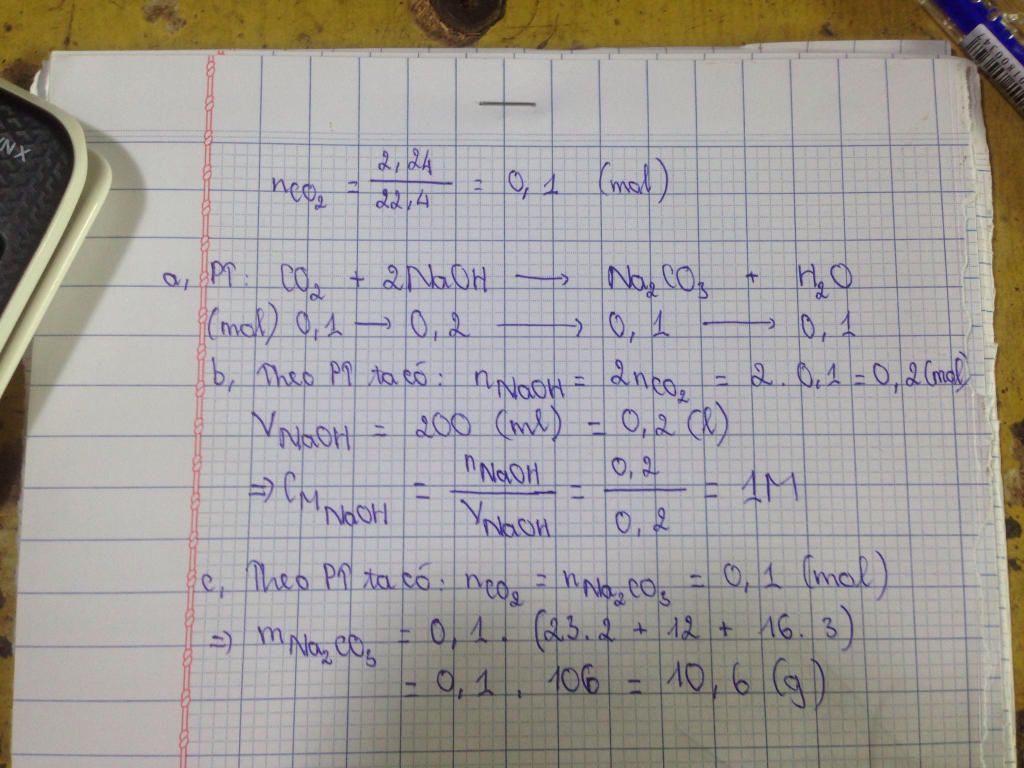 nCO₂ = 2,24 / 22,4 = 0,1 (mol)
a, PT: CO₂ + 2NaOH → Na₂CO₃ + H₂O
(mol) 0,1 → 0,2 → 0,1 → 0,1
b, Theo PT ta có: nNaOH = 2nCO₂ = 2 . 0,1 = 0,2 (mol)
VNaOH = 200 (ml) = 0,2 (l)
⇒ CM NaOH = nNaOH / VNaOH = 0,2 / 0,2 = 1M
c, Theo PT ta có: nCO₂ = nNa₂CO₃ = 0,1 (mol)
⇒ mNa₂CO₃ = 0,1 . (23.2 + 12 + 16.3)
= 0,1 . 106 = 10,6 (g)